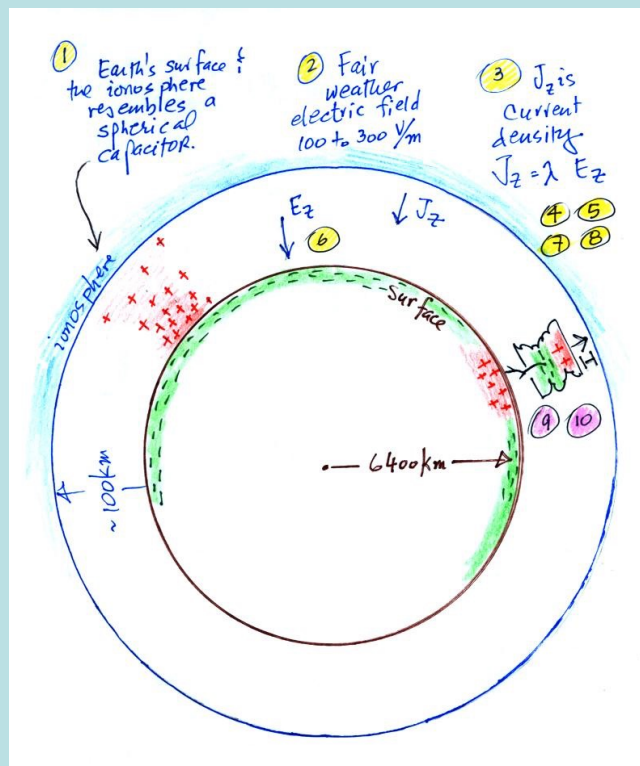 1
Earth's surface &
the ionosphere
resembles a
spherical
capacitor.
2 Fair
weather
electric field
100 to 300 V/m
3 Jz is
Current
density
Jz = λ Ez
4 5
7 8
Ez
6
Jz
ionosphere
Surface
I
9 10
6400km
~100km